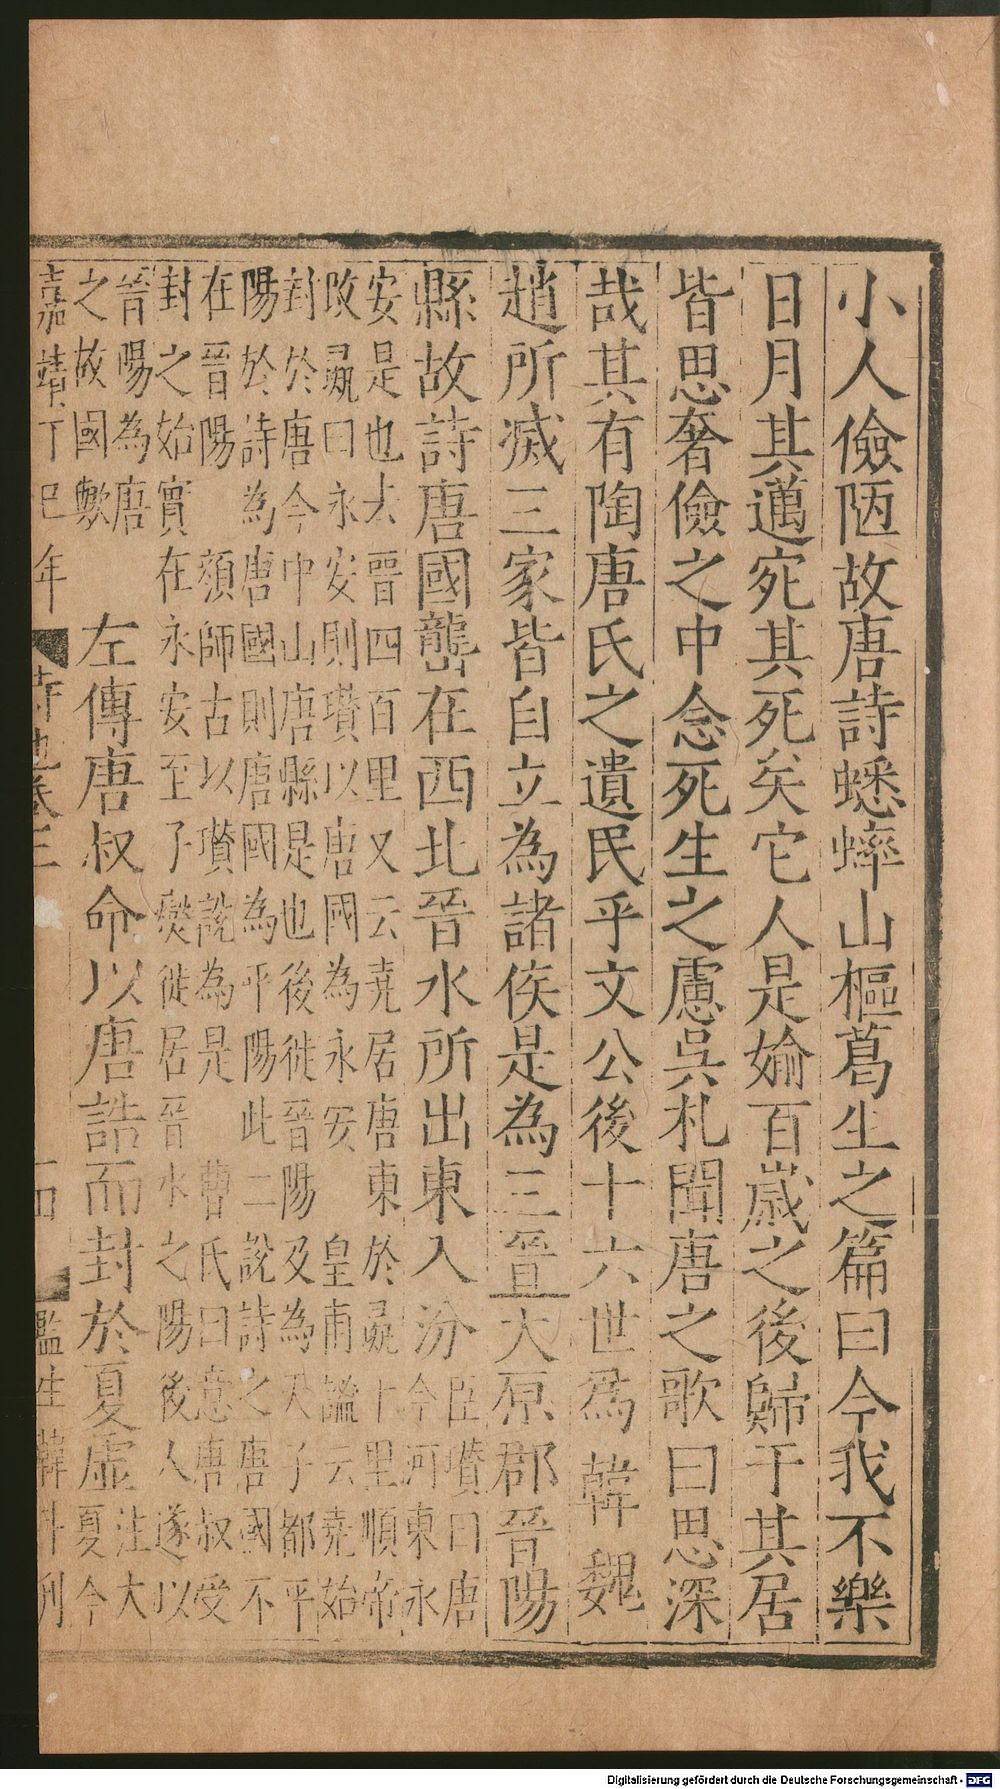 小人儉陋故唐詩蟋蟀山樞葛生之篇曰今我不樂
日月其邁宛其死矣它人是媮百歲之後歸于其居
皆思奢儉之中念死生之慮吳札聞唐之歌曰思深
哉其有陶唐氏之遺民乎文公後十六世爲韓魏
趙所滅三家皆自立為諸侯是為三晉大原郡晉陽
縣故詩唐國龍山在西北晉水所出東入汾
臣瓚曰唐
今河東永
安是也去晉四百里又云堯居唐東於彘十里順帝
改彘曰永安則瓚以唐國為永安皇甫謐云堯始
封於唐今中山唐縣是也後徙晉陽及為天子都平
陽於詩為唐國則唐國為平陽此二說詩之唐國不
在晉陽 顏師古以瓚說為是 曹氏曰意唐叔受
封之始實在永安至子燮徙居晉水之陽後人遂以
晉陽為唐
之故國歟
左傳唐叔命以唐誥而封於夏虛
注大
夏今
嘉靖丁巳年 詩地卷三 監生韓科刊
Digitalisierung gefördert durch die Deutsche Forschungsgemeinschaft - DFG